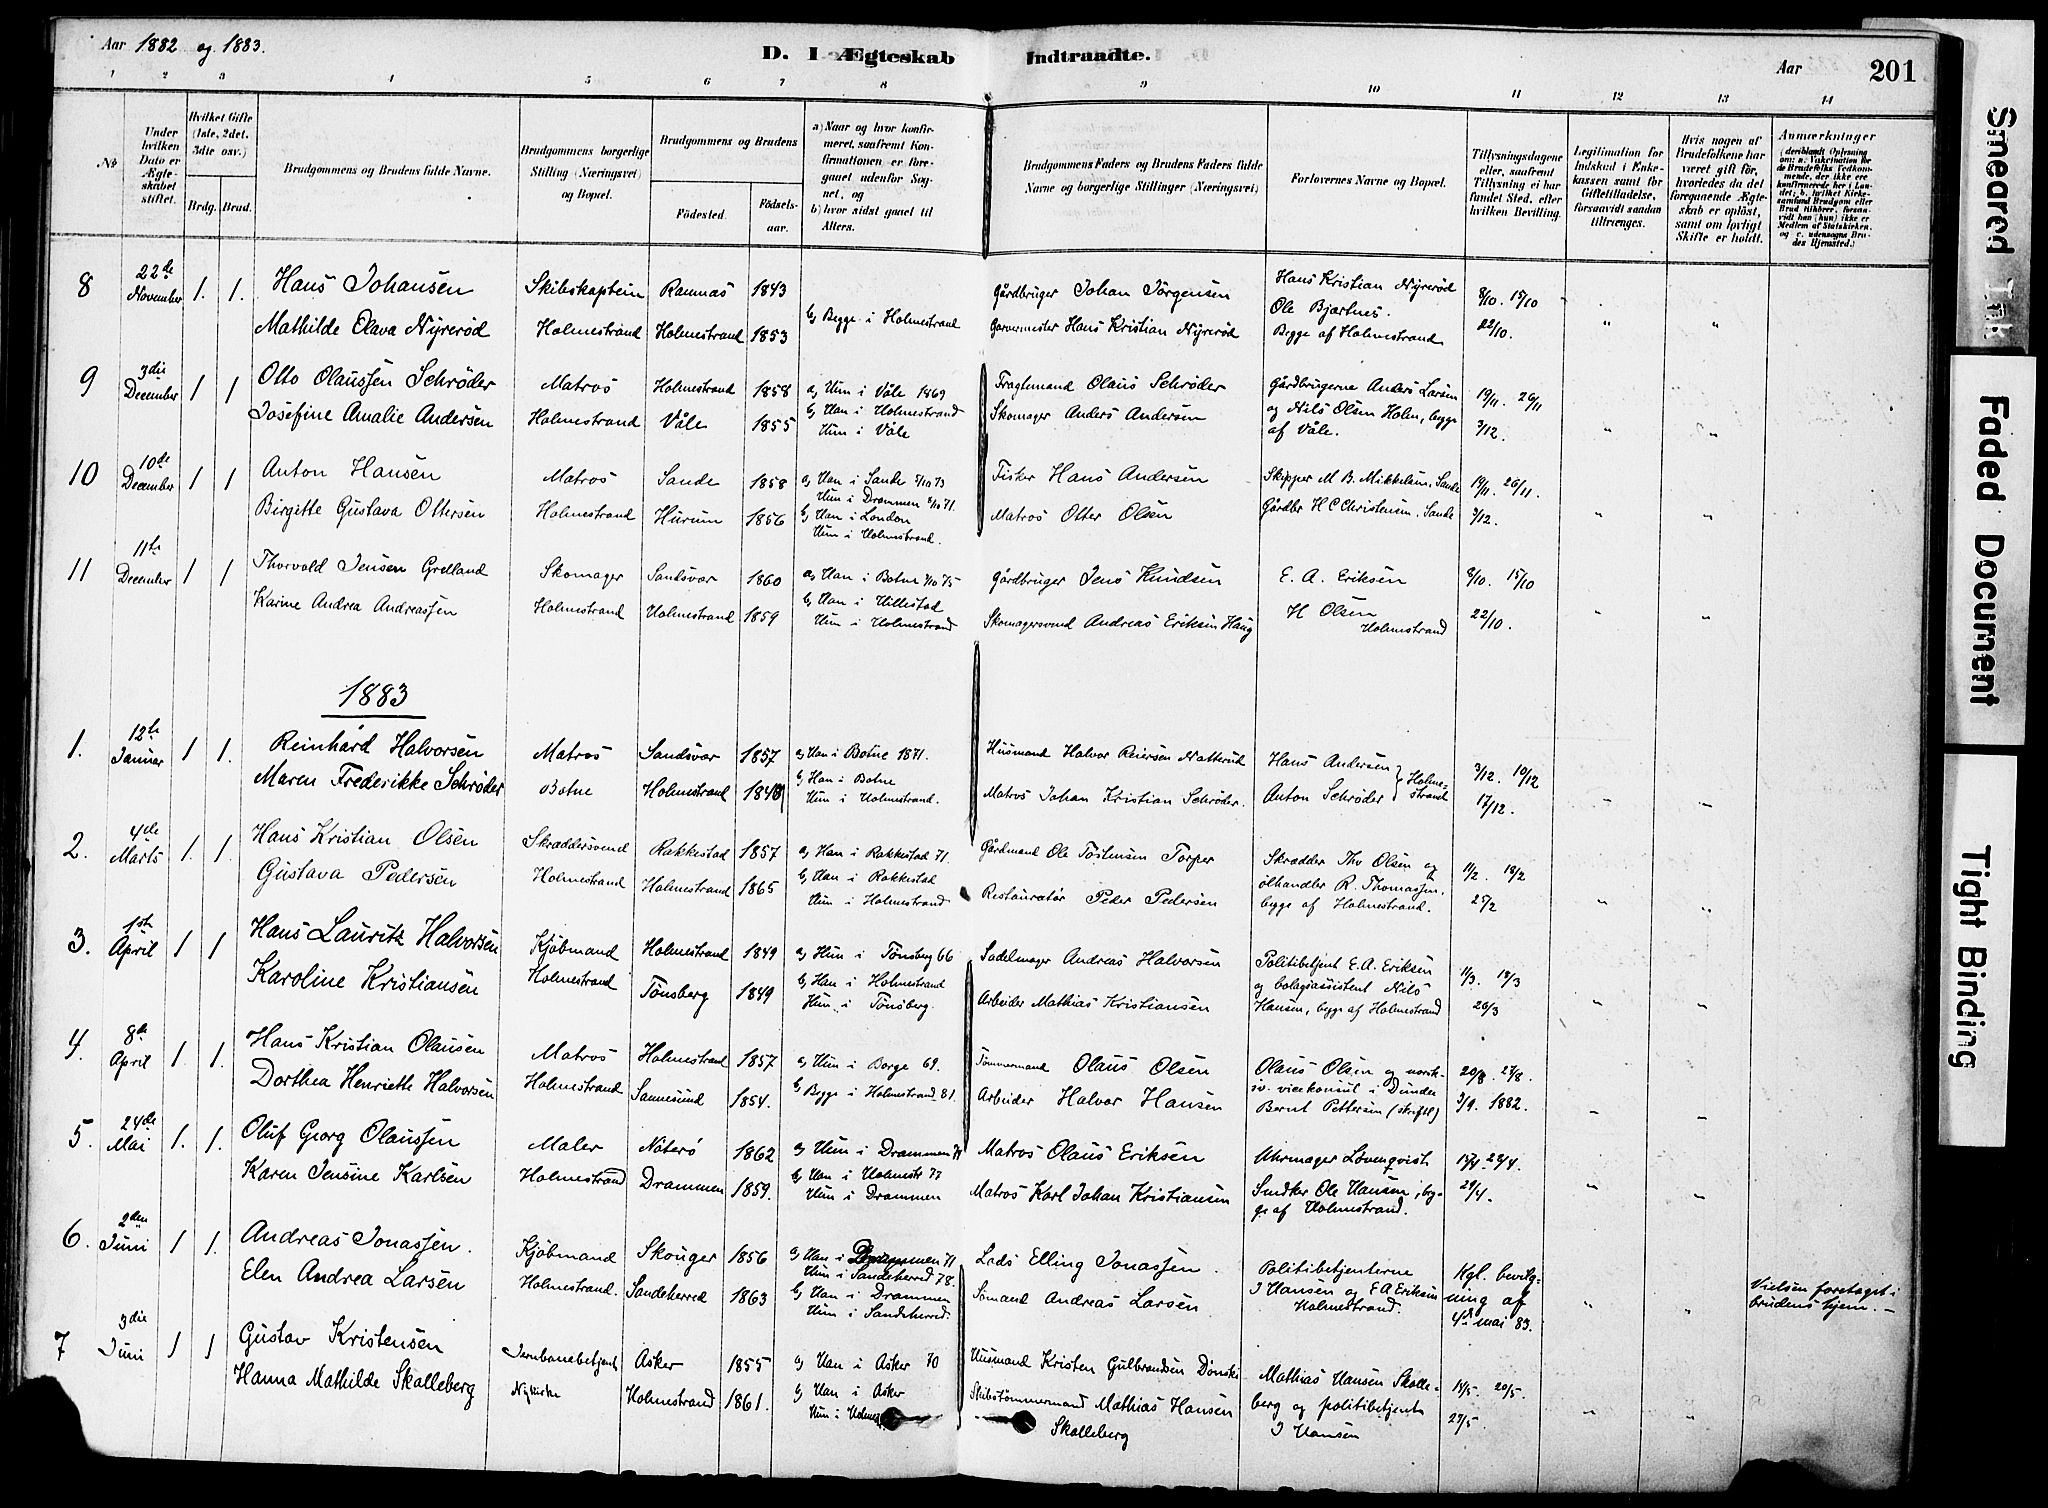 Aar 1882 og 1883.
D. I Ægteskab Indtraadte.
Aar 201
1 2 3 4 5 6 7 8 9 10 11 12 13 14
No
Under hvilken Dato er Ægteskabet stiftet.
Hvilket Gifte (1ste, 2det, 3die osv.)
Brdg. Brud.
Brudgommens og Brudens fulde Navne.
Brudgommens borgerlige Stilling (Næringsvei) og Bopæl.
Brudgommens og Brudens
Fødested.
Fødselsaar.
a) Naar og hvor konfirmeret, saafremt Konfirmationen er foregaaet udenfor Sognet, og
b) hvor sidst gaaet til Alters.
Brudgommens Faders og Brudens Faders fulde Navne og borgerlige Stillinger (Næringsvei)
Forlovernes Navne og Bopæl.
Tillysningsdagene eller, saafremt Tillysning ei har fundet Sted, efter hvilken Bevilling.
Legitimation for Indskud i Enkekassen samt for Giftetilladelse, forsaavidt saadan tiltrænges.
Hvis nogen af Brudefolkene har været gift før, hvorledes da det foregaaende Ægteskab er opløst, samt om lovligt Skifte er holdt.
Anmærkninger
(deriblandt Oplysning om: a. Vakcination for de Brudefolks Vedkommende, der ikke ere konfirmerede her i Landet; b. hvilket Kirkesamfund Brudgom eller Brud tilhører, forsaavidt han (hun) ikke er Medlem af Statskirken, og c. udensogns Brudes Hjemsted.)
8 22de November 1. 1. Hans Johansen Skibskaptein Ramnæs 1843 Gårdbruger Johan Jörgensen Hans Kristian Nyrerød 8/10. 15/10
Mathilde Olava Nyrerød Holmestrand Holmestrand 1853 b, Begge i Holmestrand Garvermester Hans Kristian Nyrerød Ole Bjærtnes. Begge af Holmestrand 22/10.
9 3die December 1 1 Otto Olaussen Schrøder Matros Holmestrand 1858 a, Hun i Våle 1869 Fragtmand Olaus Schrøder Gårdbrugerne Anders Larsen 19/11. 26/11
Josefine Amalie Andersen Holmestrand Våle 1855 b, Han i Holmestrand Hun i Våle Skomager Anders Andersen og Nils Olsen Holm, begge af Våle. 3/12.
10 10de December 1 1 Anton Hansen Matros Sande 1858 a, Han i Sande 5/10 73 Hun i Drammen 8/10 71. Fisker Hans Andersen Skipper M B. Mikkelsen, Sande 19/11. 26/11.
Birgitte Gustava Ottersen Holmestrand Hurum 1856 b, Han i London Hun i Holmestrand. Matros Otter Olsen Gårdbr H C Christensen, Sande 3/12.
11 11te December 1 1 Thorvald Jensen Grelland Skomager Sandsvær 1860 a, Han i Botne 3/10 75 Gårdbruger Jens Knudsen E. A. Eriksen 8/10. 15/10
Karine Andrea Andreassen Holmestrand Holmestrand 1859 b, Han i Hillestad Hun i Holmestrand Skomagersvend Andreas Eriksen Haug H Olsen Holmestrand 22/10.
1883
1. 12te Januar 1 1. Reinhard Halvorsen Matros Sandsvær 1857 a, Han i Botne 1871. Husmand Halvor Reiersen Natterud Hans Andersen 3/12. 10/12
Maren Frederikke Schrøder Botne Holmestrand b, Han i Botne Hun i Holmestrand. Matros Johan Kristian Schrøder. Anton Schrøder Holmestrand 17/12.
2. 4de Marts 1. 1. Hans Kristian Olsen Skræddersvend Rakkestad 1857 a, Han i Rakkestad 71. Gårdmand Ole Tostensen Torper Skrædder Thv Olsen og 11/2. 18/2
Gustava Pedersen Holmestrand Holmestrand 1865 b, Han i Rakkestad Hun i Holmestrand Restauratør Peder Pedersen ølhandler R. Thomassen, begge af Holmestrand. 25/2
3. 1ste April 1 1 Hans Lauritz Halvorsen Kjøbmand Holmestrand 1849 a, Hun i Tönsberg 66 Sadelmager Andreas Halvorsen Politibetjent E. A. Eriksen 11/3. 18/3
Karoline Kristiansen Holmestrand Tönsberg 1849 b, Han i Holmestrand Hun i Tönsberg. Arbeider Mathias Kristiansen og bolagsassistent Nils Hansen, begge af Holmestrand 26/3
4. 8de April 1. 1. Hans Kristian Olausen Matros Holmestrand 1857 a, Hun i Borge 69. Tømmermand Olaus Olsen Olaus Olsen og norsk- 20/8. 27/8.
Dorthea Henriette Halvorsen Holmestrand Sannesund 1854. b, Begge i Holmestrand 81. Arbeider Halvor Hansen sv. vicekonsul i Dundee Bernt Pettersen (skriftl) 3/9. 1882.
5. 24de Mai 1. 1. Oluf Georg Olaussen Maler Nøterø 1862 a, Hun i Drammen Matros Olaus Eriksen Uhrmager Lövenqvist 15/4. 22/4.
Karen Jensine Karlsen Holmestrand Drammen 1859. b, Han i Holmestr 77 Hun i Drammen Matros Karl Johan Kristiansen Smedker Ole Hansen, begge af Holmestrand. 29/4.
6. 2den Juni 1 1. Andreas Jonassen. Kjøbmand Skouger 1856 a, Han i Drammen 71 Hun i Sandeherred 78. Lods Elling Jonassen. Politibetjenterne Kgl. bevilg-
Elen Andrea Larsen Holmestrand. Sandeherred 1863 b, Han i Drammen Hun i Sandeherred. Sømand Andreas Larsen J Hansen og E A Eriksen Holmestrand. ning af 4de mai 83. Vielsen foretaget i brudens hjem. –
7 3die Juni 1 1 Gustav Kristensen Jernbanebetjent Asker 1855 a, Han i Asker 70 Husmand Kristen Gulbrandsen Dønski Mathias Hansen Skalle- 13/5. 20/5.
Hanna Mathilde Skalleberg Nykirke Holmestrand 1861. b, Han i Asker Hun i Holmest Skibstömmermand Mathias Hansen Skalleberg berg og politibetjent J Hansen 27/5.
Smeared Ink
Faded Document
Tight Binding